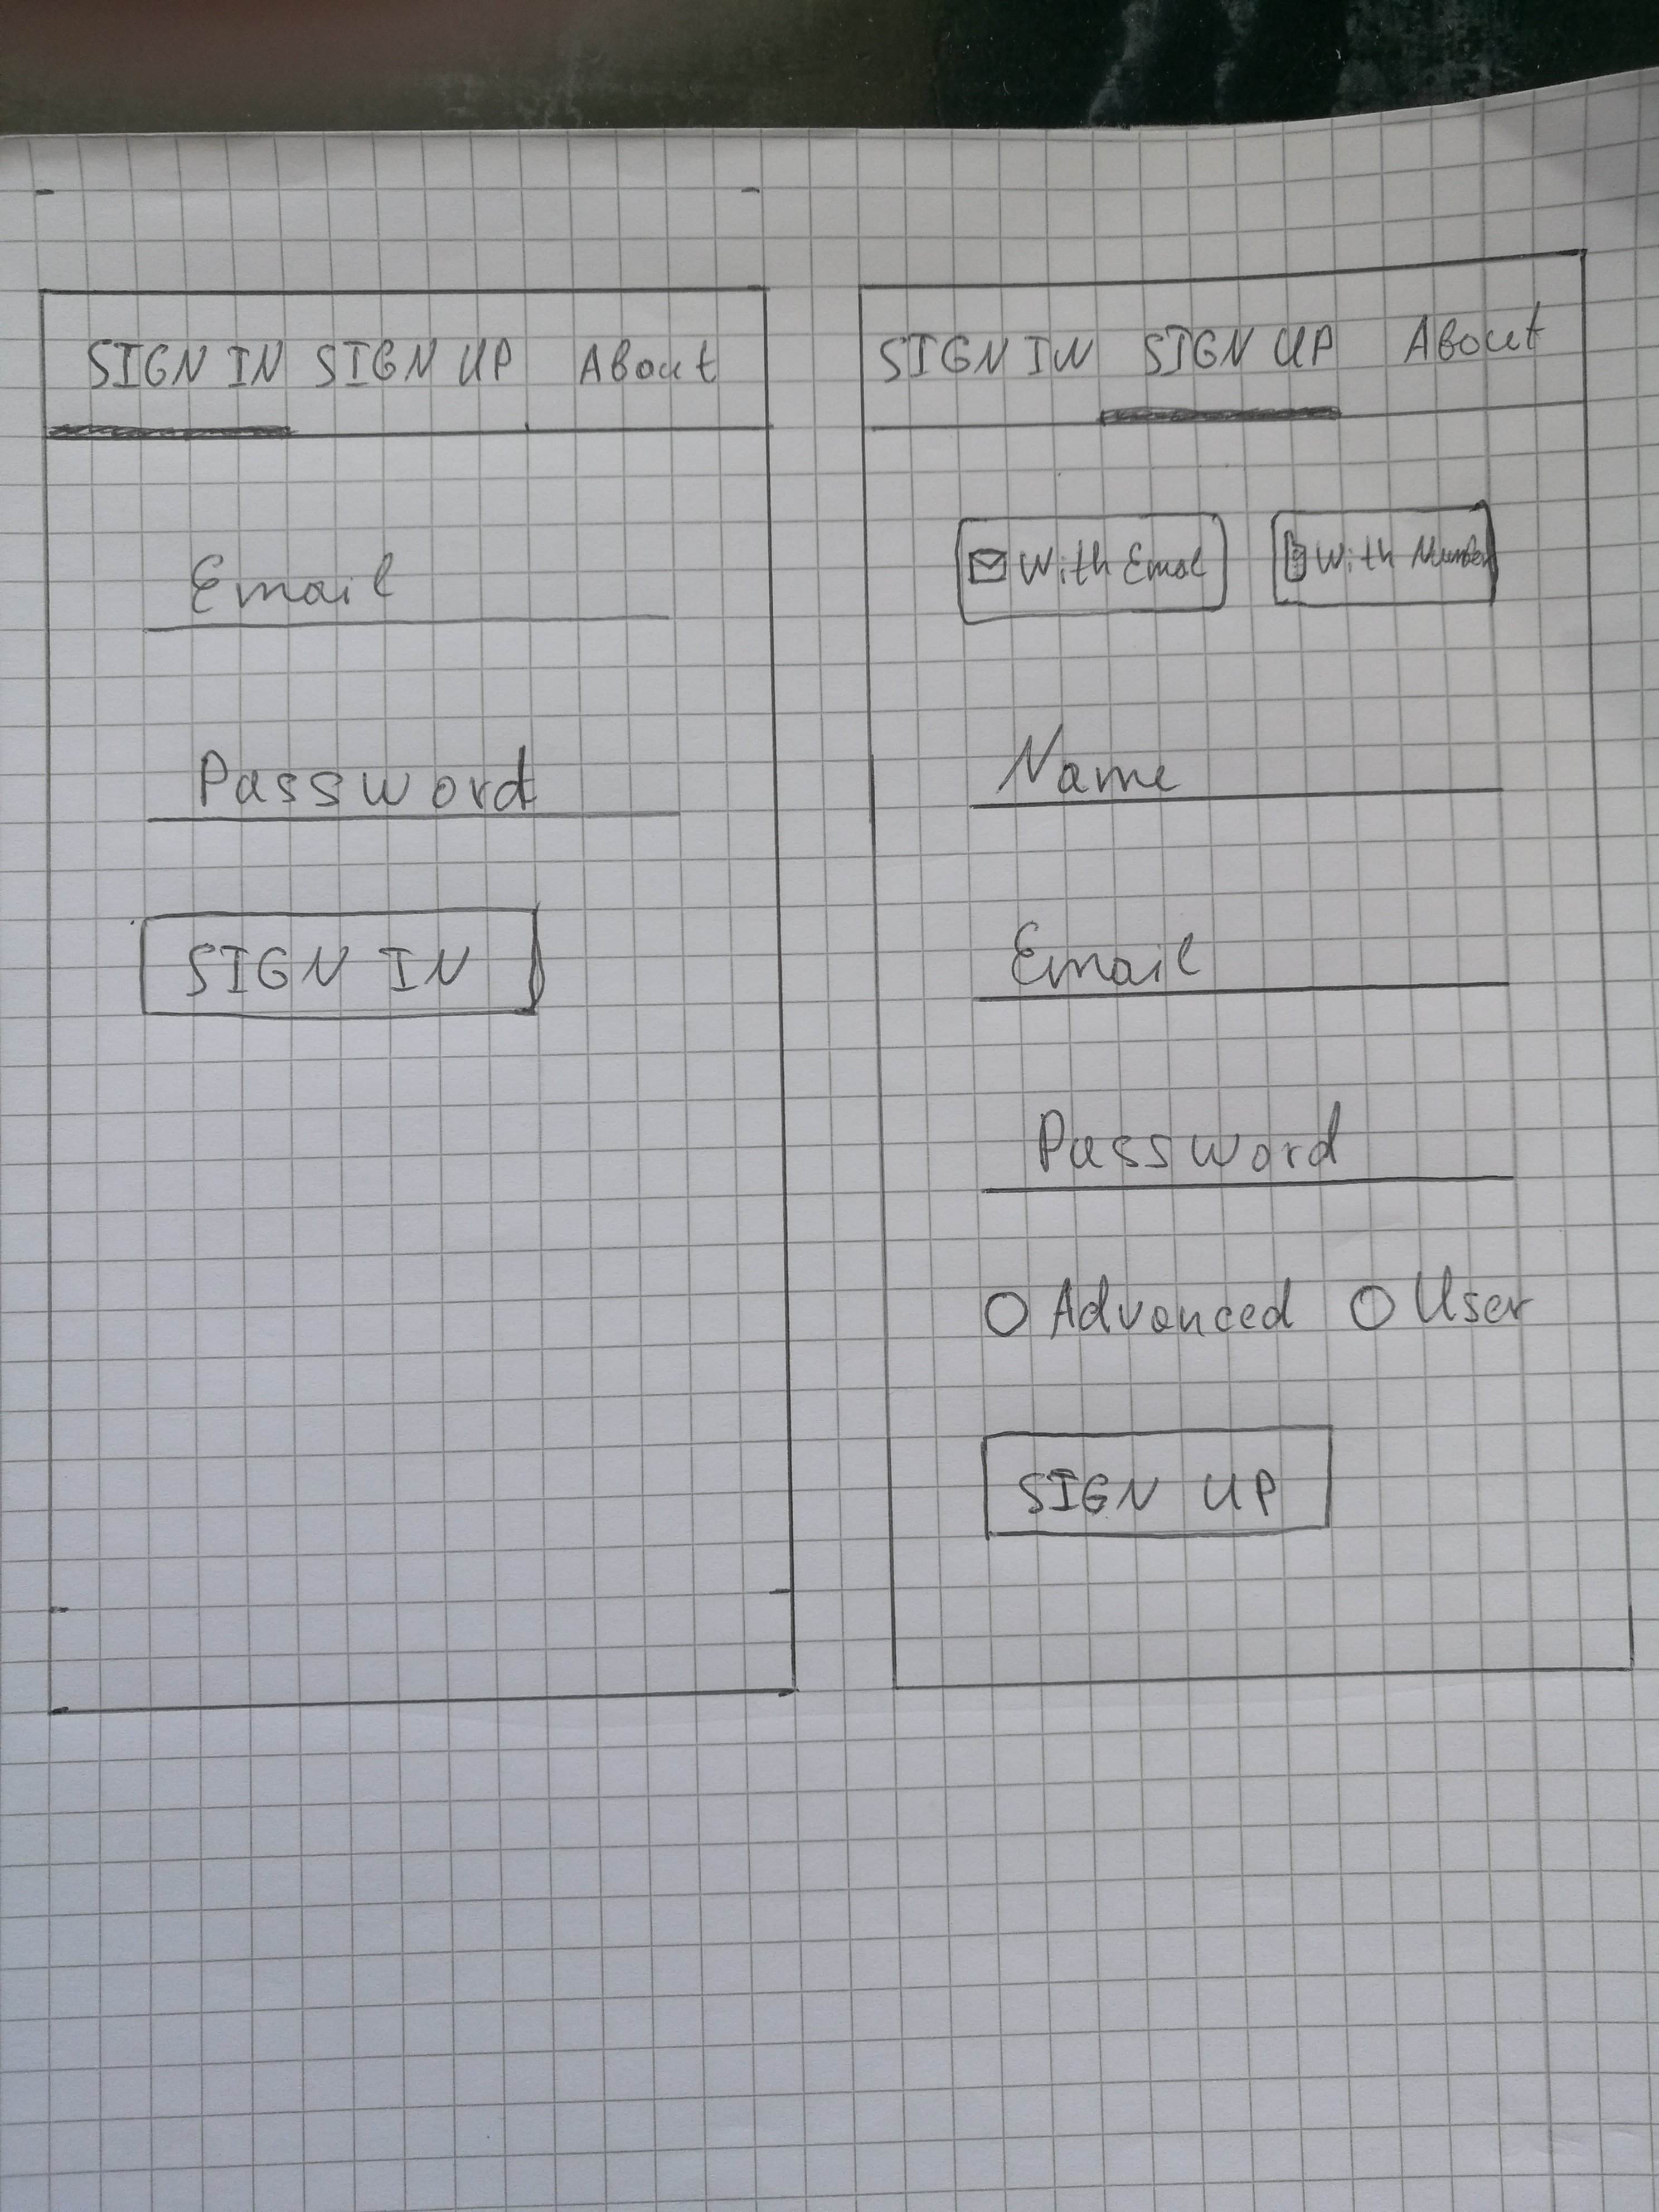 SIGN IN SIGN UP About
Email
Password
SIGN IN
SIGN IN SIGN UP About
With Email With Number
Name
Email
Password
Advanced User
SIGN UP